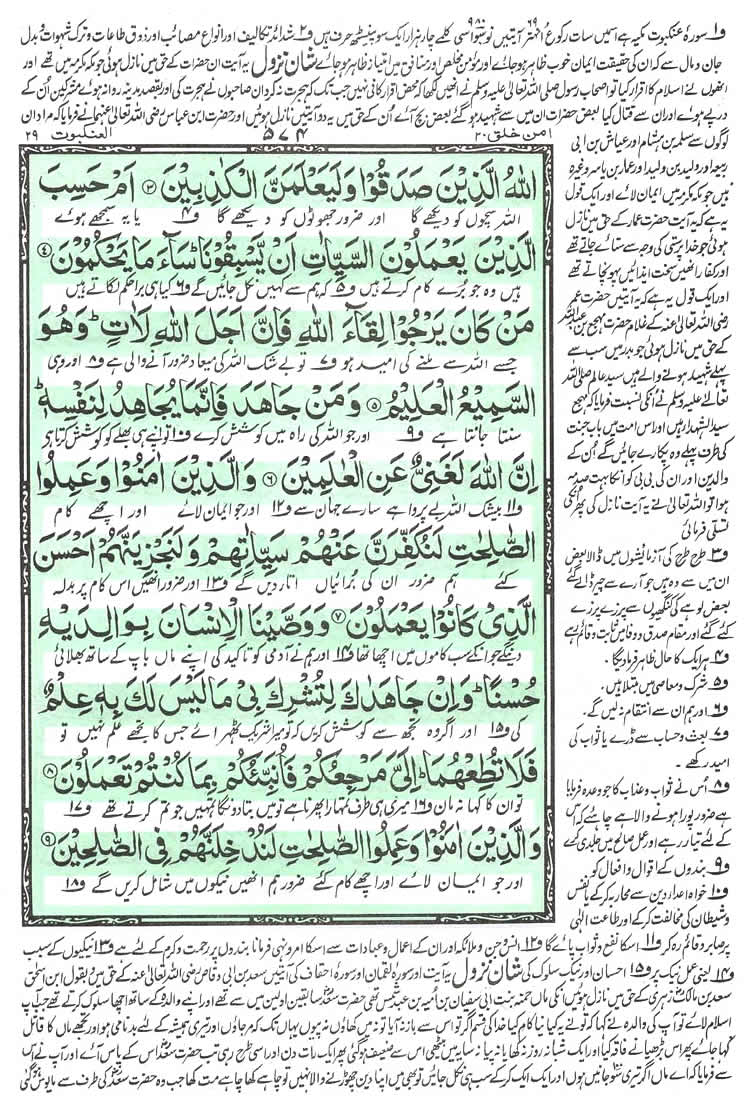 و۱ سورۂ عنکبوت مکیہ ہے اسمیں سات رکوع انہتر آیتیں نوسو اسی کلمے چار ہزار ایک سو پینسٹھ حرف ہیں و۲ شدائد تکالیف اور انواع مصائب اور ذوق طاعات و ترک شہوات و بدل
جان و مال سے کہ ان کی حقیقت ایمان خوب ظاہر ہو جائے اور مؤمن مخلص اور منافق میں امتیاز ظاہر ہو جائے شان نزول یہ آیت ان حضرات کے حق میں نازل ہوئی جو مکہ مکرمہ میں تھے اور
انھوں نے اسلام کا اقرار کیا تو اصحاب رسول صلی اللہ تعالیٰ علیہ وسلم نے انھیں لکھا کہ محض اقرار کافی نہیں جب تک کہ ہجرت نہ کرو ان صاحبوں نے ہجرت کی اور بقصد مدینہ روانہ ہوئے مشرکین اُن کے
درپے ہوئے اور ان سے قتال کیا بعض حضرات ان میں سے شہید ہو گئے بعض بچ آئے اُن کے حق میں یہ دو آیتیں نازل ہوئیں اور حضرت ابن عباس رضی اللہ تعالیٰ عنہما نے فرمایا کہ مراد ان
امن خلق ۲۰
۵۷۴
العنکبوت ۲۹
لوگوں سے سلمہ بن ہشام اور عیاش بن ابی
ربیعہ اور ولید بن ولید اور عمار بن یاسر وغیرہ
ہیں جو مکہ مکرمہ میں ایمان لائے اور ایک قول
یہ ہے کہ یہ آیت حضرت عمار کے حق میں نازل
ہوئی جو خدا پرستی کی وجہ سے ستائے جاتے تھے
اور کفار انھیں سخت ایذائیں پہونچاتے تھے
اور ایک قول یہ ہے کہ یہ آیتیں حضرت عمر
رضی اللہ تعالیٰ عنہ کے غلام حضرت مہجع بن عبداللہ
کے حق میں نازل ہوئیں جو بدر میں سب سے
پہلے شہید ہونے والے ہیں سید عالم صلی اللہ
تعالےٰ علیہ وسلم نے انکی نسبت فرمایا کہ مہجع
سید الشہداء ہیں اور اس امت میں باب جنت
کی طرف پہلے وہ پکارے جائیں گے اُن کے
والدین اور ان کی بی بی کو انکا بہت صدمہ
ہوا تو اللہ تعالیٰ نے یہ آیت نازل کی پھر انکی
تسلی فرمائی
و۳ طرح طرح کی آزمائشوں میں ڈالا بعض
ان میں سے وہ ہیں جو آرے سے چیر ڈالے گئے
بعض لوہے کی کنگھیوں سے پرزے پرزے
کئے گئے اور مقام صدق و وفا میں ثابت و قائم رہے
و۴ ہر ایک کا حال ظاہر فرما دیگا۔
و۵ شرک و معاصی میں مبتلا ہیں۔
و۶ اور ہم ان سے انتقام نہ لیں گے۔
و۷ بعث و حساب سے ڈرے یا ثواب کی
امید رکھے۔
و۸ اُس نے ثواب و عذاب کا جو وعدہ فرمایا
ہے ضرور پورا ہونے والا ہے چاہئے کہ اس
کے لئے تیار رہے اور عمل صالح میں جلدی کرے
و۹ بندوں کے اقوال و افعال کو
و۱۰ خواہ اعداءِ دین سے محاربہ کرکے یا نفس
و شیطان کی مخالفت کرکے اور طاعت الٰہی
اللّٰهُ الَّذِیْنَ صَدَقُوْا وَلَیَعْلَمَنَّ الْكٰذِبِیْنَ ۝۳ اَمْ حَسِبَ
اللہ سچوں کو دیکھے گا اور ضرور جھوٹوں کو دیکھے گا و۴ یا یہ سمجھے ہوئے
الَّذِیْنَ یَعْمَلُوْنَ السَّیِّاٰتِ اَنْ یَّسْبِقُوْنَا ؕ سَآءَ مَا یَحْكُمُوْنَ ۝۴
ہیں وہ جو بُرے کام کرتے ہیں و۵ کہ ہم سے کہیں نکل جائیں گے و۶ کیا ہی برا حکم لگاتے ہیں
مَنْ كَانَ یَرْجُوْا لِقَآءَ اللّٰهِ فَاِنَّ اَجَلَ اللّٰهِ لَاٰتٍ ؕ وَهُوَ
جسے اللہ سے ملنے کی امید ہو و۷ تو بے شک اللہ کی میعاد ضرور آنے والی ہے و۸ اور وہی
السَّمِیْعُ الْعَلِیْمُ ۝۵ وَمَنْ جَاهَدَ فَاِنَّمَا یُجَاهِدُ لِنَفْسِهٖ ؕ
سنتا جانتا ہے و۹ اور جو اللہ کی راہ میں کوشش کرے و۱۰ تو اپنے ہی بھلے کو کوشش کرتا ہے
اِنَّ اللّٰهَ لَغَنِیٌّ عَنِ الْعٰلَمِیْنَ ۝۶ وَالَّذِیْنَ اٰمَنُوْا وَعَمِلُوا
و۱۱ بیشک اللہ بے پروا ہے سارے جہان سے و۱۲ اور جو ایمان لائے اور اچھے کام
الصّٰلِحٰتِ لَنُكَفِّرَنَّ عَنْهُمْ سَیِّاٰتِهِمْ وَلَنَجْزِیَنَّهُمْ اَحْسَنَ
کئے ہم ضرور ان کی برائیاں اتار دیں گے و۱۳ اور ضرور انھیں اس کام پر بدلہ
الَّذِیْ كَانُوْا یَعْمَلُوْنَ ۝۷ وَوَصَّیْنَا الْاِنْسَانَ بِوَالِدَیْهِ
دینگے جو انکے سب کاموں میں اچھا تھا و۱۴ اور ہم نے آدمی کو تاکید کی اپنے ماں باپ کے ساتھ بھلائی
حُسْنًا ؕ وَاِنْ جَاهَدٰكَ لِتُشْرِكَ بِیْ مَا لَیْسَ لَكَ بِهٖ عِلْمٌ
کی و۱۵ اور اگر وہ تجھ سے کوشش کریں کہ تو میرا شریک ٹھہرائے جس کا تجھے علم نہیں تو
فَلَا تُطِعْهُمَا ؕ اِلَیَّ مَرْجِعُكُمْ فَاُنَبِّئُكُمْ بِمَا كُنْتُمْ تَعْمَلُوْنَ ۝۸
تو ان کا کہا نہ مان و۱۶ میری ہی طرف تمہارا پھرنا ہے تو میں بتا دونگا تمہیں جو تم کرتے تھے و۱۷
وَالَّذِیْنَ اٰمَنُوْا وَعَمِلُوا الصّٰلِحٰتِ لَنُدْخِلَنَّهُمْ فِی الصّٰلِحِیْنَ ۝۹
اور جو ایمان لائے اور اچھے کام کئے ضرور ہم انھیں نیکوں میں شامل کریں گے و۱۸
پر صابر و قائم رہ کر و۱۱ اسکا نفع و ثواب پائے گا و۱۲ انس و جن و ملائکہ اور ان کے اعمال و عبادات سے اسکا امر و نہی فرمانا بندوں پر رحمت و کرم کے لئے ہے و۱۳ نیکیوں کے سبب
و۱۴ یعنی عمل نیک پر و۱۵ احسان اور نیک سلوک کی شان نزول یہ آیت اور سورۂ لقمان اور سورۂ احقاف کی آیتیں سعد بن ابی وقاص رضی اللہ تعالیٰ عنہ کے حق میں و بقول ابن اسحٰق
سعد بن مالک زہری کے حق میں نازل ہوئیں انکی ماں حمنہ بنت ابی سفیان بن امیہ بن عبد شمس تھی حضرت سعد سابقین اولین میں سے تھے اور اپنے والدہ کے ساتھ اچھا سلوک کرتے تھے جب آپ
اسلام لائے تو آپ کی والدہ نے کہا کہ تو نے یہ کیا نیا کام کیا خدا کی قسم اگر تو اس سے باز نہ آیا تو نہ میں کھاؤں نہ پیوں یہاں تک کہ مر جاؤں اور تیری ہمیشہ کے لئے بدنامی ہو اور تجھے ماں کا قاتل
کہا جائے پھر اس بڑھیا نے فاقہ کیا اور ایک شبانہ روز نہ کھایا نہ پیا نہ سایہ میں بیٹھی اس سے ضعیف ہو گئی پھر ایک رات دن اور اسی طرح رہی تب حضرت سعد اس کے پاس آئے اور آپ نے اس
سے فرمایا کہ اے ماں اگر تیری سو جانیں ہوں اور ایک ایک کرکے سب ہی نکل جائیں تو بھی میں اپنا دین چھوڑنے والا نہیں تو چاہے کھا چاہے مت کھا جب وہ حضرت سعد کی طرف سے مایوس ہو گئی